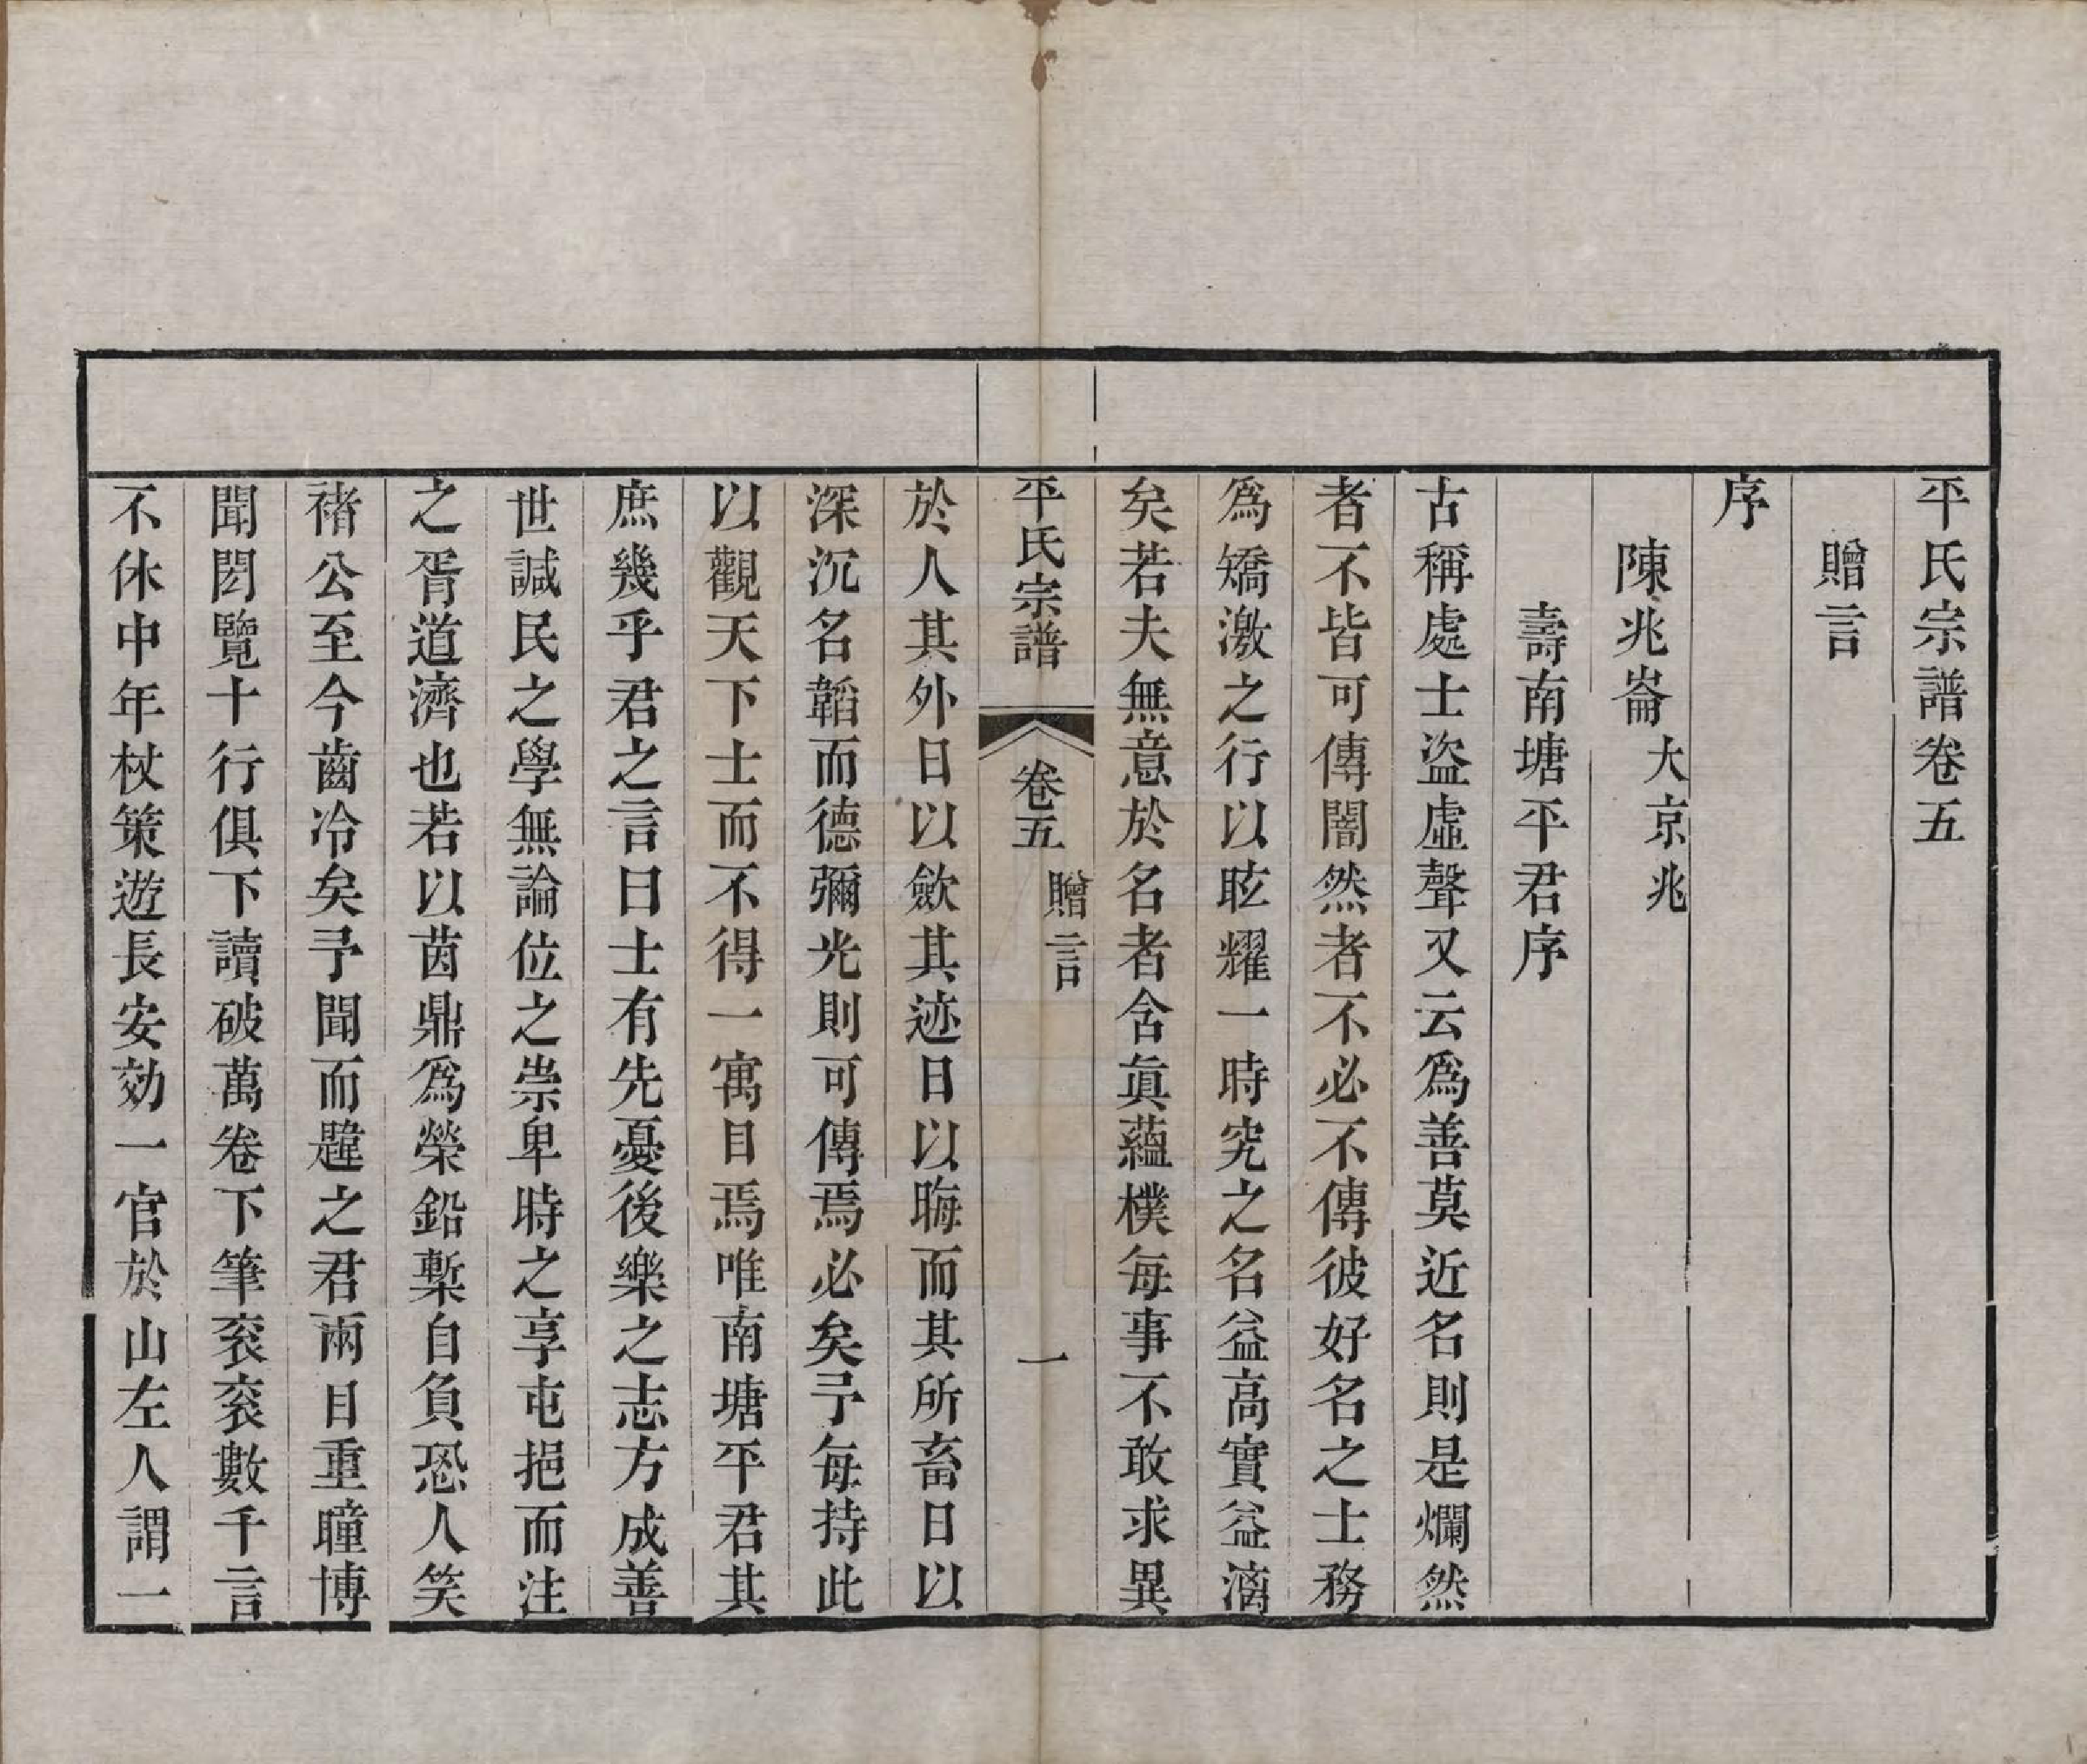 平氏宗譜卷五
贈言
序
陳兆崙大京兆
壽南塘平君序
古稱處士盜虛聲又云爲善莫近名則是爛然
者不皆可傳闇然者不必不傳彼好名之士務
爲矯激之行以眩耀一時究之名益高實益漓
矣若夫無意於名者含眞蘊樸每事不敢求異
平氏宗譜 卷五 贈言 一
於人其外日以斂其迹日以晦而其所畜日以
深沉名韜而德彌光則可傳焉必矣予每持此
以觀天下士而不得一寓目焉唯南塘平君其
庶幾乎君之言曰士有先憂後樂之志方成善
世諴民之學無論位之崇卑時之享屯挹而注
之胥道濟也若以茵鼎爲榮鉛槧自負恐人笑
褚公至今齒冷矣予聞而韙之君兩目重瞳博
聞閎覽十行俱下讀破萬卷下筆衮衮數千言
不休中年杖策遊長安効一官於山左人謂一